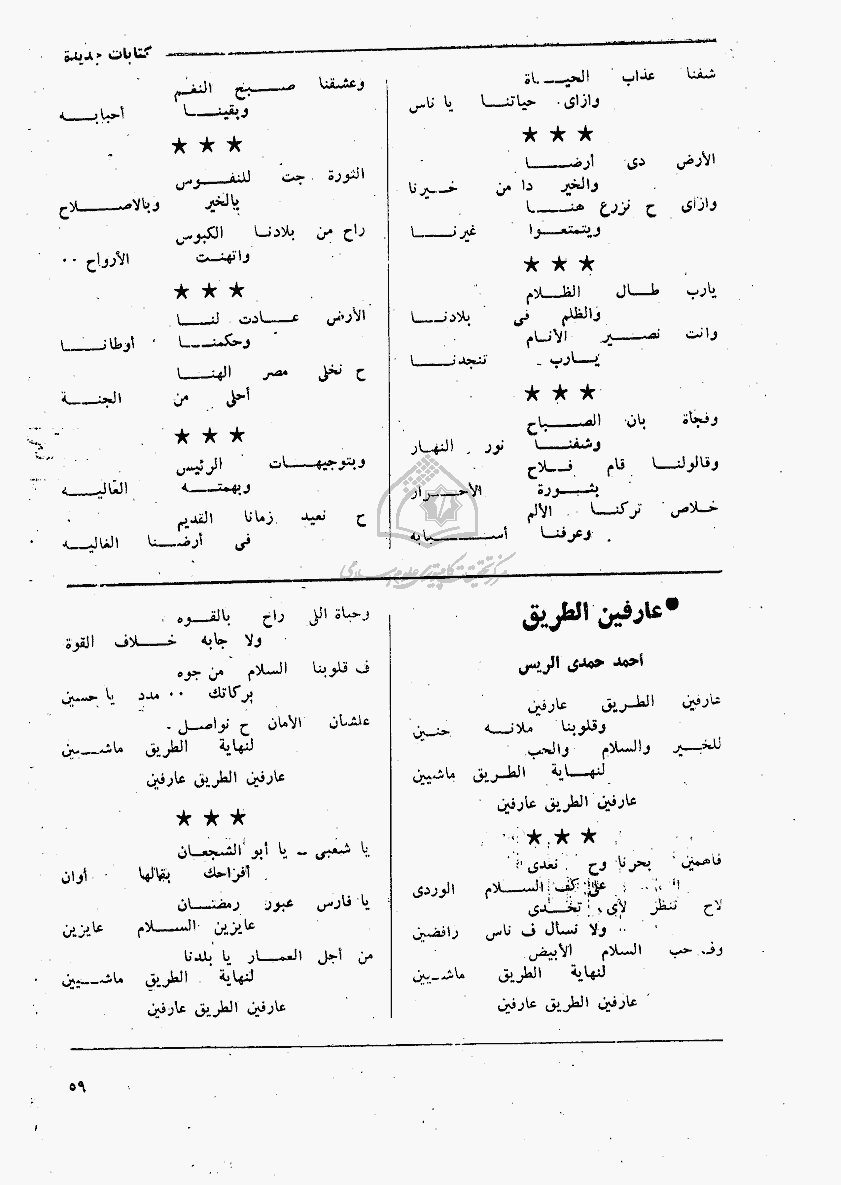 كتابات جديدة
شفنا عذاب الحيـــاة
وازاى حياتنـــا يا ناس
★ ★ ★
الأرض دى أرضـــا
والخير دا من خـيرنا
وازاى ح نزرع هنـــا
ويتمتعـــوا غيرنـــا
★ ★ ★
يارب طـــال الظـــلام
والظلم فى بلادنـــا
وانت نصـــير الأنـام
يـــارب تنجدنـــا
★ ★ ★
وفجأة بان الصـــباح
وشفنـــا نور النهـار
وقالولنـــا قام فـــلاح
بثـــورة الأحـــرار
خـــلاص تركنـــا الألم
وعرفنـا أســـبابه
وعشقنا صـــبح النغم
وبقينـــا أحبابـــه
★ ★ ★
الثورة جت للنفـــوس
بالخير وبالاصـــلاح
راح من بلادنـا الكبوس
واتهنـت الأرواح ٠٠
★ ★ ★
الأرض عـــادت لنـــا
وحكمنـــا أوطانـــا
ح نخلى مصر الهنـــا
أحلى من الجنـــة
★ ★ ★
وبتوجيهـــات الرئيس
وبهمتـــه العاليـــه
ح نعيد زمانا القديم
فى أرضـــنا الغاليـــه
● عارفين الطريق
أحمد حمدى الريس
عارفين الطـريق عارفين
وقلوبنا ملانـــه حنـين
للخـــير والسـلام والحب
لنهـــاية الطـريق ماشيين
عارفين الطريق عارفين
★ ★ ★
فاهمين بحرنا وح نعدى
على كف الســـلام الوردى
لاح تنظر لأى تحـــدى
ولا نسأل ف ناس رافضين
وف حب السلام الأبيض
لنهاية الطريق ماشـيين
عارفين الطريق عارفين
وحياة اللى راح بالقـــوه
ولا جابه خـــلاف القوة
ف قلوبنا السلام من جوه
بركاتك ٠٠ مدد يا حسين
علشان الأمان ح نواصـل
لنهاية الطريق ماشـــيين
عارفين الطريق عارفين
★ ★ ★
يا شعبى ــ يا أبو الشجعـان
أفراحك بقالها أوان
يا فارس عبور رمضـــان
عايزين الســـلام عايزين
من أجل العمـــار يا بلدنا
لنهاية الطريق ماشـــيين
عارفين الطريق عارفين
٥٩